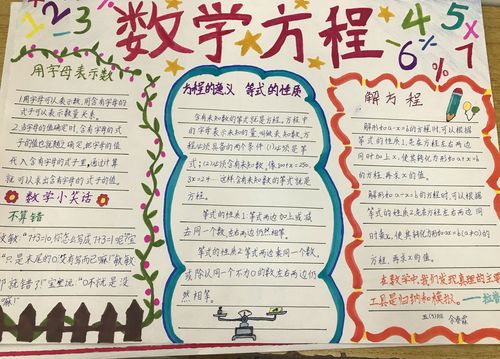 数学方程
1 2 - 3
4 5 × 6 ÷ % 7
用字母表示数
1.用字母可以表示数,用含有字母的
式子可以表示数量关系。
2.当字母的值确定时,含有字母的式
子的值也就随之确定,把字母的值
代入含有字母的式子里,通过计算
就可以求出含有字母的式子的值。
数学小笑话
不算错
"7+3=10,你怎么写成7+3=1呢?
"只是末尾的0
就错了!""0不就是没
方程的意义 等式的性质
含有未知数的等式就是方程。方程中
的字母表示未知的量,叫做未知数,方
程必须具备两个条件(1)必须是等
式;(2)必须含有未知数,像100+x=250,
3x=2.4……这样含有未知数的等式就是
方程。
等式的性质1:等式两边加上或减
去同一个数,左右两边仍然相等。
等式的性质2:等式两边乘同一个数,
或除以同一个不为0的数,左右两边仍
然相等。
解方程
解形如a-x=b的方程时,可以根据
等式的性质1,是在方程左右两边
同时加上x,使其转化为形如a±x=b
的方程,再求x的值。
解形如a÷x=b的方程时,可以根据
等式的性质2,是在方程左右两边同
时乘x,使其转化为形如ax=b(a≠0)的
方程,再求x的值。
在数学中,我们发现真理的主要
工具是归纳和模拟。
五(5)班